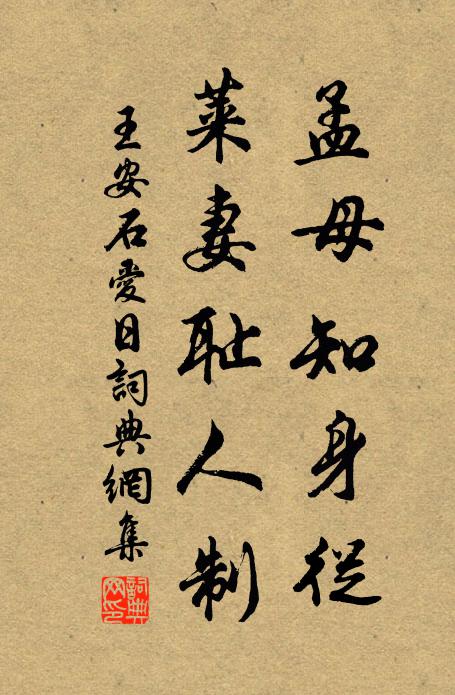 孟母知身從
萊妻恥人制
王安石愛日詞典網集
詞典網印